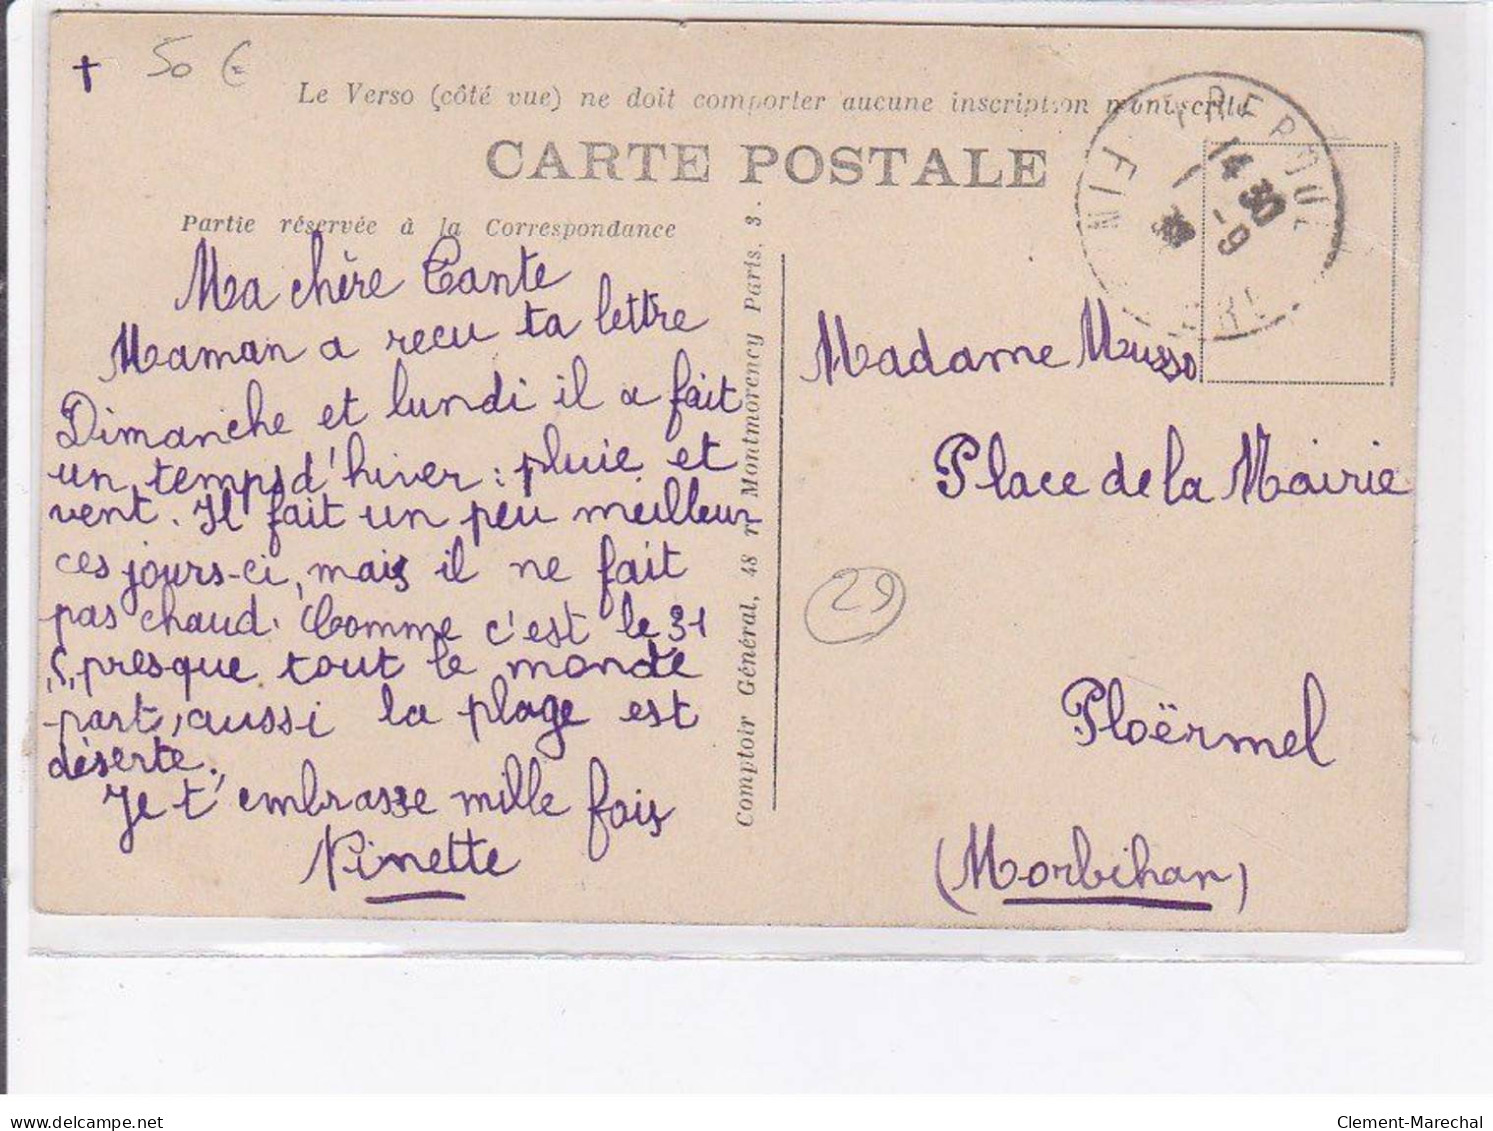 † 50 €
Le Verso (côté vue) ne doit comporter aucune inscription manuscrite
CARTE POSTALE
Partie réservée à la Correspondance
Ma chère Tante
Maman a recu ta lettre
Dimanche et lundi il a fait
un temps d'hiver : pluie et
vent. Il fait un peu meilleur
ces jours-ci, mais il ne fait
pas chaud. Comme c'est le 31
presque tout le monde
part, aussi la plage est
déserte.
Je t'embrasse mille fois
Ninette
Comptoir Général, 48 r. Montmorency Paris. 3.
14 30
-9
FIN
Madame Musso
Place de la Mairie
29
Ploërmel
(Morbihan)
delcampe.net
Clement-Marechal